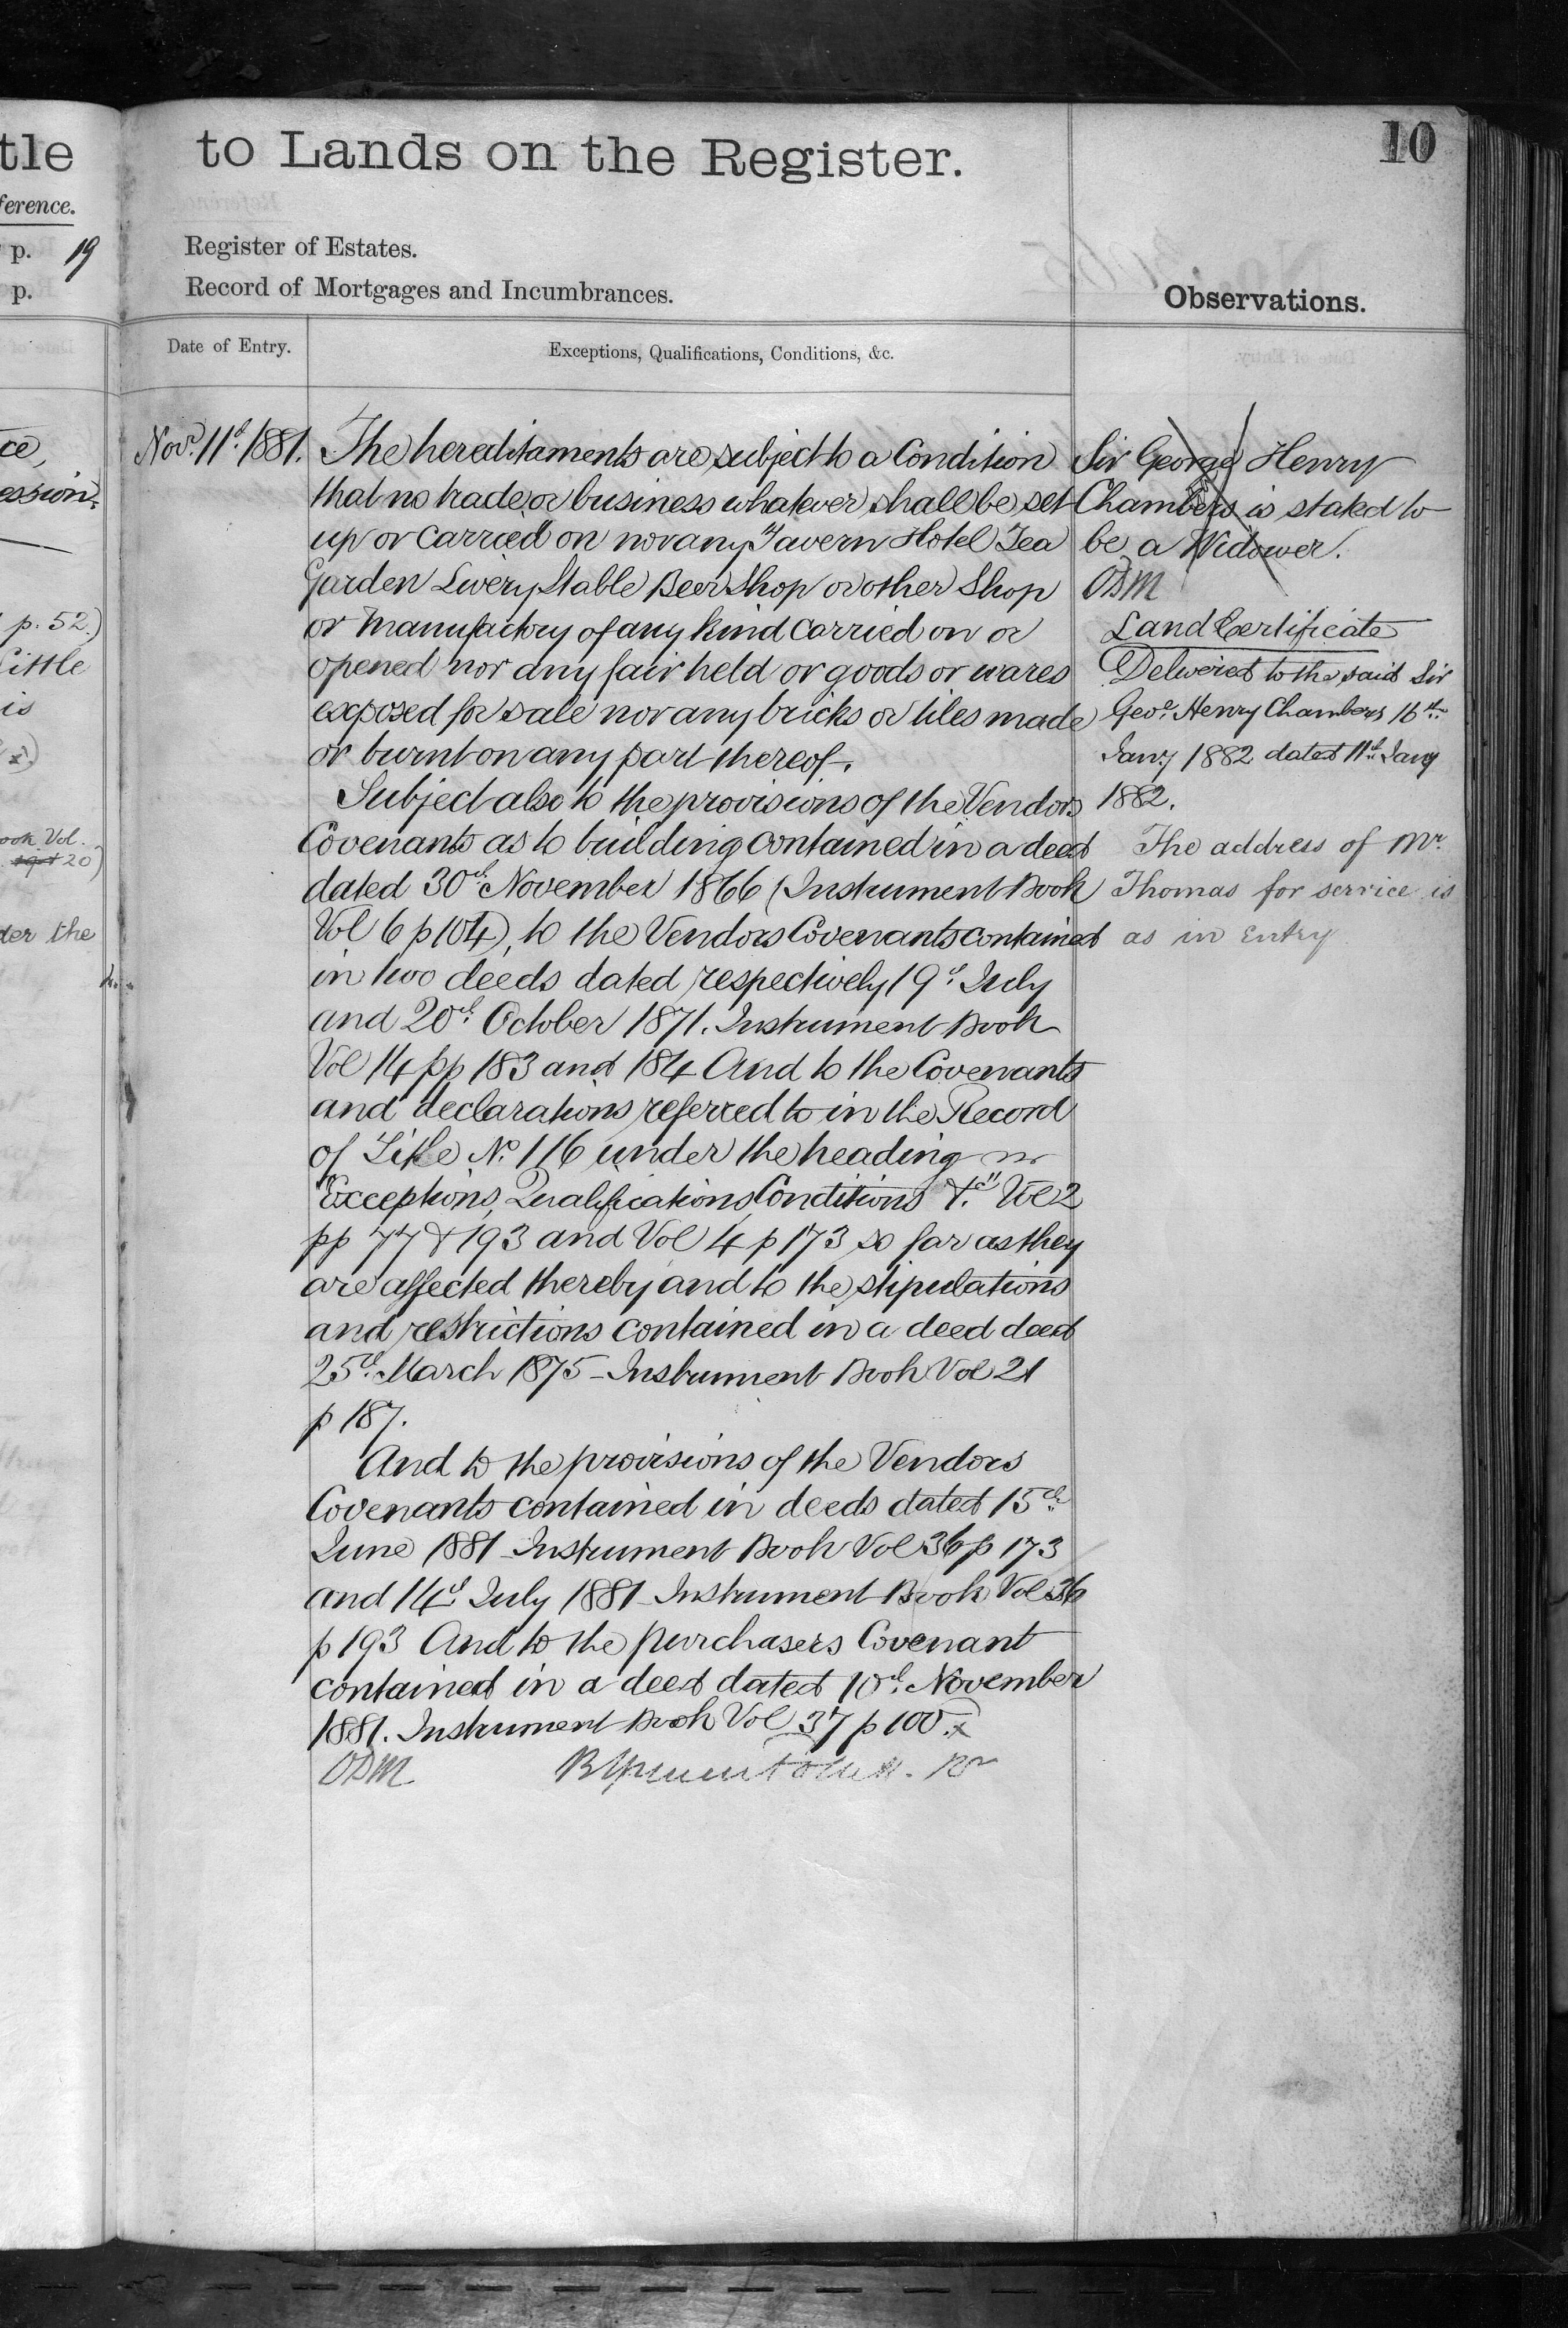 tle
ference.
p. 19
p.
ce,
ession.
p. 52.)
Little
is
x)
ook Vol.
20)
der the
to Lands on the Register.
10
Register of Estates.
Record of Mortgages and Incumbrances.
Observations.
Date of Entry.
Exceptions, Qualifications, Conditions, &c.
Novr. 11th 1881.
The hereditaments are subject to a Condition
that no trade or business whatever shall be set
up or carried on nor any Tavern Hotel Tea
Garden Livery Stable Beer Shop or other Shop
or Manufactory of any kind carried on or
opened nor any fair held or goods or wares
exposed for sale nor any bricks or tiles made
or burnt on any part thereof.
Subject also to the provisions of the Vendors
Covenants as to building contained in a deed
dated 30th November 1866 (Instrument Book
Vol 6 p 104), to the Vendors Covenants contained
in two deeds dated respectively 19th July
and 20th October 1871. Instrument Book
Vol 14 pp 183 and 184 And to the Covenants
and declarations referred to in the Record
of Title No. 116 under the heading
"Exceptions, Qualifications Conditions &c." Vol 2
pp 77 & 193 and Vol 4 p 173 so far as they
are affected thereby and to the stipulations
and restrictions contained in a deed deed
25th March 1875 - Instrument Book Vol 21
p 187.
And to the provisions of the Vendors
Covenants contained in deeds dated 15th
June 1881 - Instrument Book Vol 36 p 173
and 14th July 1881 - Instrument Book Vol 36
p 193 And to the purchasers Covenant
contained in a deed dated 10th November
1881. Instrument Book Vol 37 p 100. x
ODM
Sir George Henry
Chambers is stated to
be a Widower.
ODM
Land Certificate
Delivered to the said Sir
Geoe. Henry Chambers 16th
Jany 1882 dated 11th Jany
1882.
The address of Mr.
Thomas for service is
as in Entry